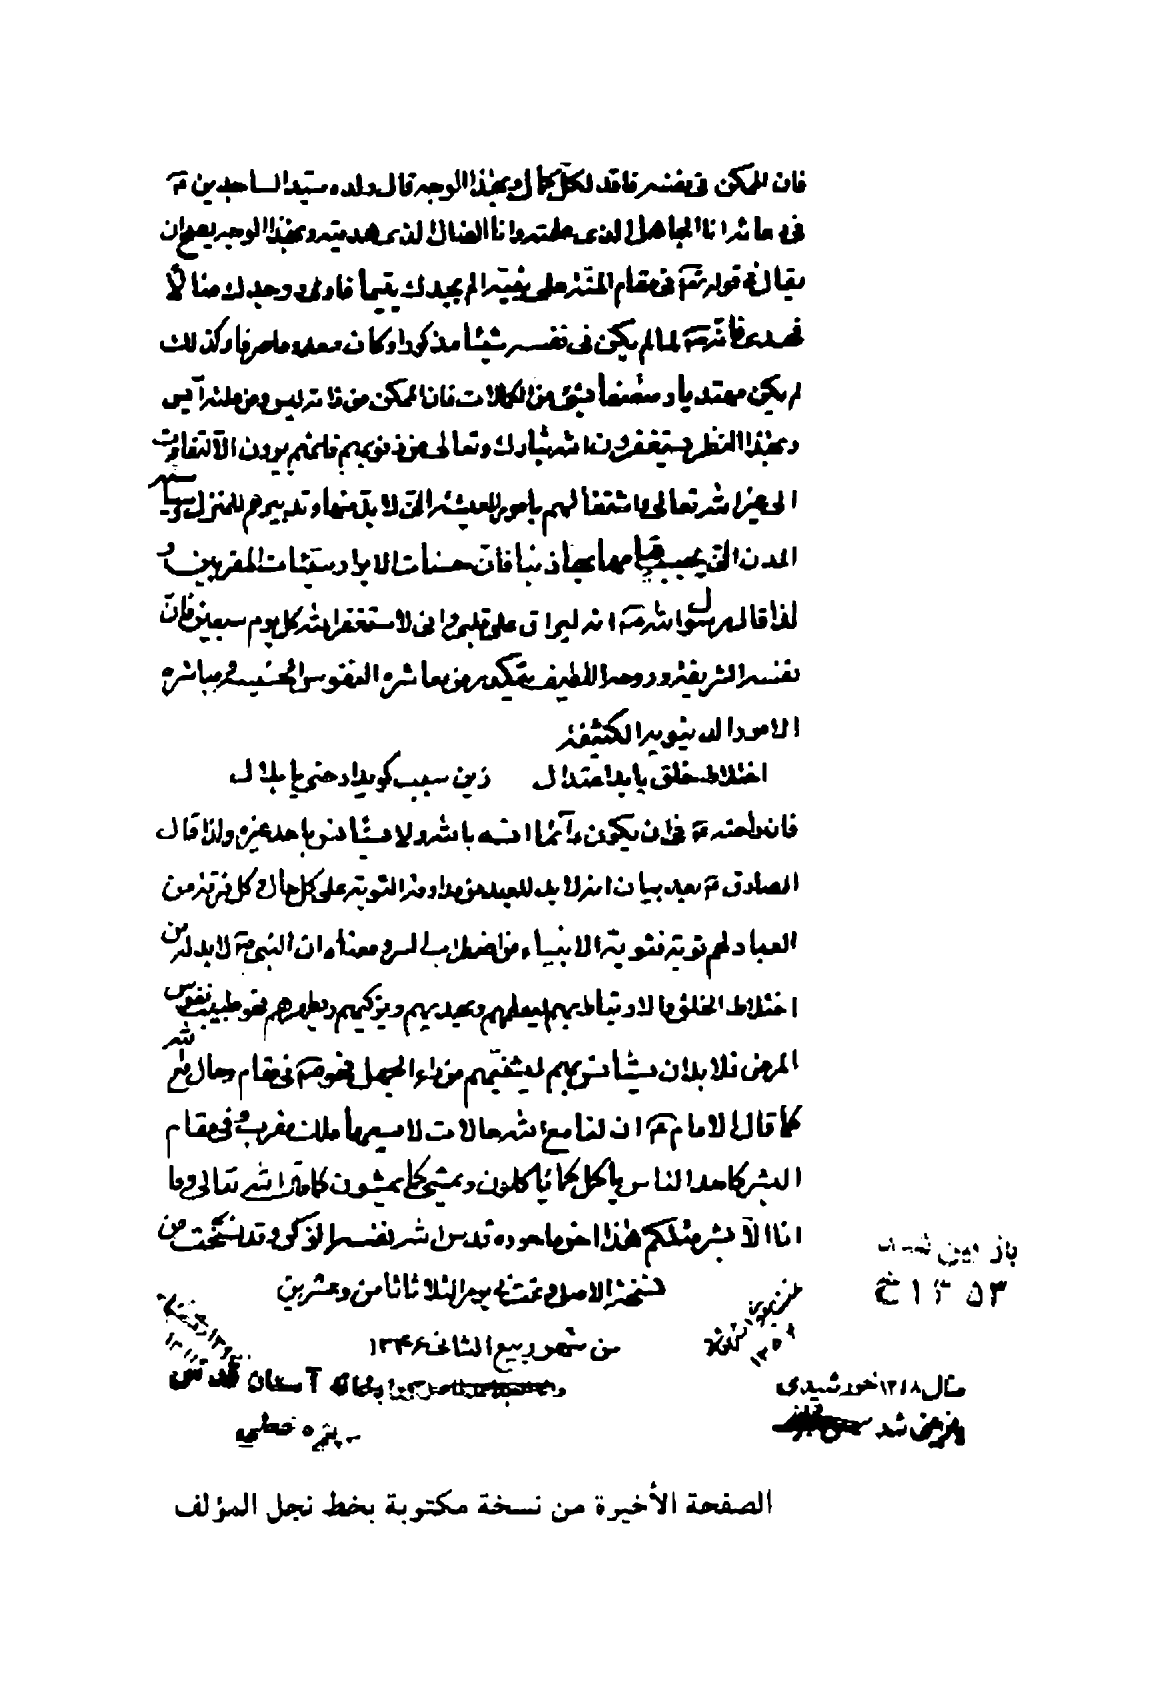 فان الممكن فى نفسه فاقد لكل كمال وبهذا الوجه قال ولده سيد الساجدين ع
فى دعائه انا الجاهل الذى علمته وانا الضال الذى هديته وبهذا الوجه يصح ان
يقال فى قوله تع فى مقام المنة على نفسه الم يجدك يتيما فاوى ووجدك ضالاً
فهدى فانه ص لما لم يكن فى نفسه شيئا مذكورا وكان معدوما صرفا وكذلك
لم يكن مهتديا ومتصفا بشئ من الكمالات فان الممكن من ذاته ليس ومن علته ايس
وبهذا النظر يستغفرون الله تبارك وتعالى من ذنوبهم فانهم يرون الالتفات
الى غير الله تعالى باشتغالهم بامور المعيشة التى لا بد منها وتدبيرهم للمنزل وسياسة
المدن التى يجب قيامهم بها ذنبا فان حسنات الابرار سيئات المقربين و
لذا قال رسول الله ص انه ليران على قلبى وانى لاستغفر الله كل يوم سبعين فان
نفسه الشريفة وروحه اللطيف يتكدر من معاشرة النفوس الخسيسة ومباشرة
الامور الدنيوية الكثيفة
اختلاط خلق يابد اعتدال زين سبب كويد ارحنى يا بلال
فان راحته ص فى ان يكون دائما انسه بالله ولا يستأنس باحد غيره ولذا قال
الصادق ع بعد بيان انه لا بد للعبد من مداومة التوبة على كل حال وكل فرقة من
العباد لهم توبة فتوبة الانبياء من اضطراب السر ومعناه ان النبى ص لا بد له من
اختلاط الخلق والارتباط بهم ليعلمهم ويهديهم ويزكيهم ويطهرهم فهو طبيب نفوس
المرضى فلا بد ان يستأنس بهم ليشفيهم من داء الجهل فهو ص فى مقام وحال مع الله
كما قال الامام ع ان لنا مع الله حالات لا يسعها ملك مقرب وفى مقام
البشر كاحد الناس ياكل كما ياكلون ويمشى كما يمشون كما قال الله تعالى وما
انا الا بشر مثلكم هذا اخر ما جوده قدس الله نفسه الزكى وقد نسخت من
نسخة الاصل وتمت فى يوم الثلاثا ثامن وعشرين
من شهر ربيع الثانى ١٣٤٦
باز بين شد
١٣٥٣ خ
كتابخانه آستان قدس
سال ١٣١٨ خورشيدى
شد
خطي
الصفحة الأخيرة من نسخة مكتوبة بخط نجل المؤلف